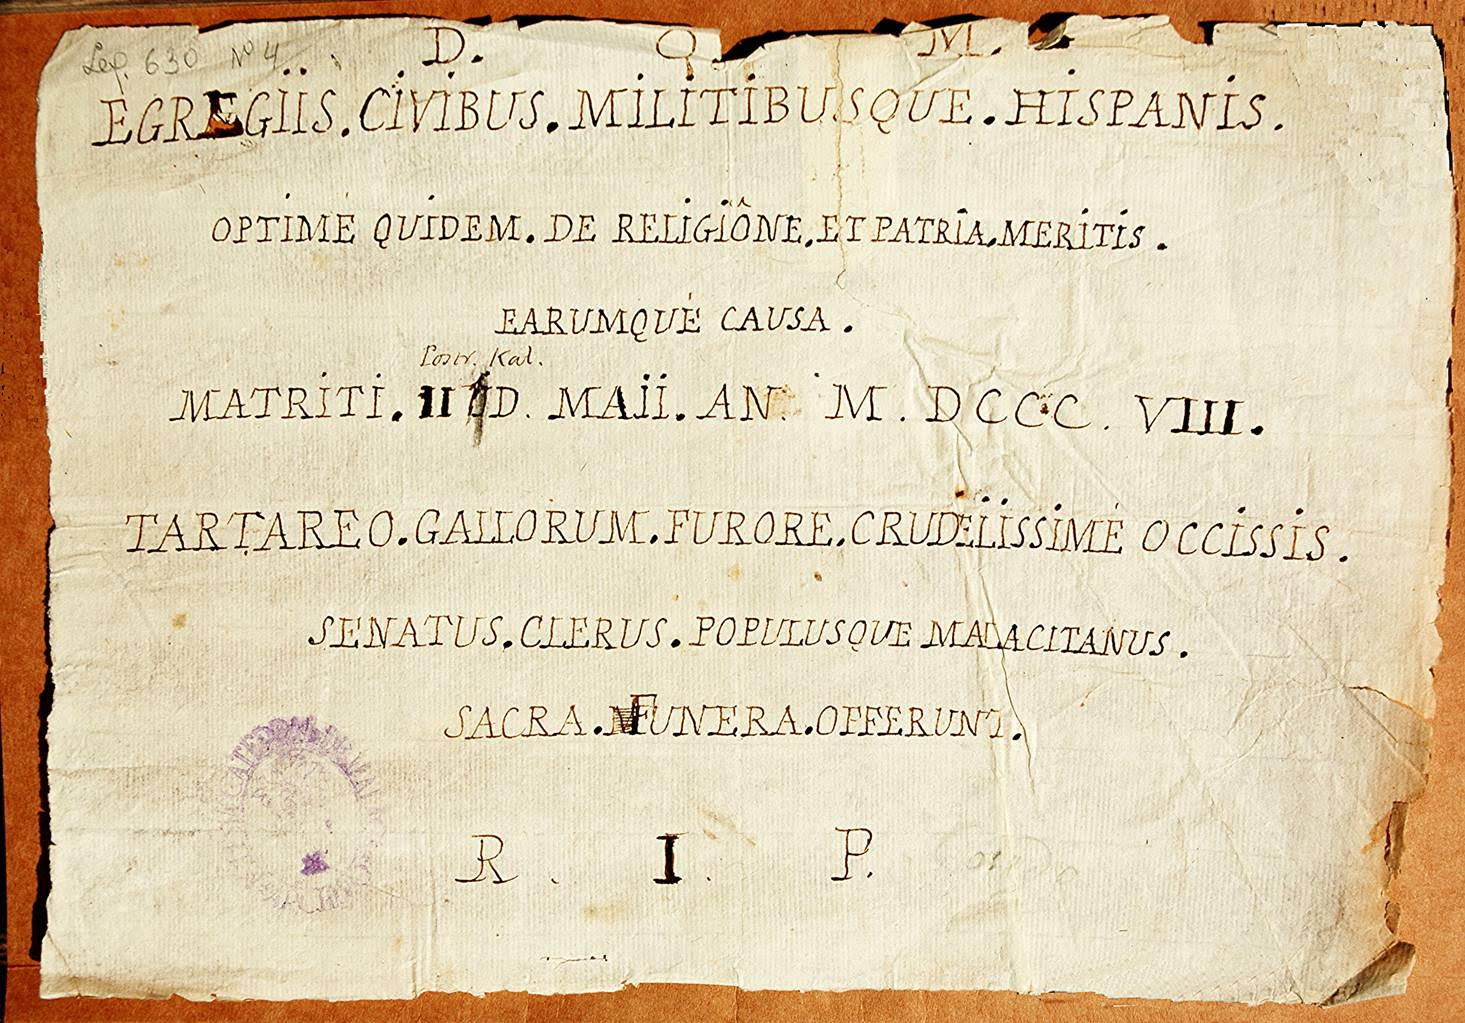 Leg. 630 Nº 4
D. O. M.
EGREGIIS. CIVIBUS. MILITIBUSQUE. HISPANIS.
OPTIMÉ QUIDEM. DE RELIGIÔNE. ET PATRÎA. MERITIS.
EARUMQUÉ CAUSA.
Postr. Kal.
MATRITI. II D. MAII. AN. M. DCCC. VIII.
TARTAREO. GALLORUM. FURORE. CRUDELISSIMÉ OCCISSIS.
SENATUS. CLERUS. POPULUSQUE MALACITANUS.
SACRA. FUNERA. OFFERUNT.
R. I. P.